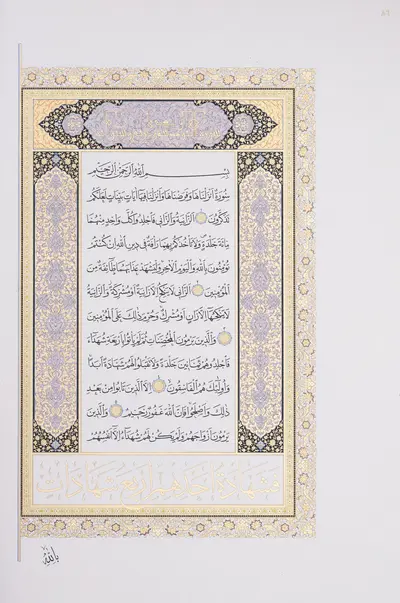 بِسْمِ اللَّهِ الرَّحْمَنِ الرَّحِيمِ
سُورَةٌ اَنْزَلْنَاهَا وَفَرَضْنَاهَا وَاَنْزَلْنَا فِيهَا آيَاتٍ بَيِّنَاتٍ لَعَلَّكُمْ
تَذَكَّرُونَ اَلزَّانِيَةُ وَالزَّانِي فَاجْلِدُوا كُلَّ وَاحِدٍ مِنْهُمَا
مِائَةَ جَلْدَةٍ وَلَا تَأْخُذْكُمْ بِهِمَا رَأْفَةٌ فِي دِينِ اللَّهِ اِنْ كُنْتُمْ
تُؤْمِنُونَ بِاللَّهِ وَالْيَوْمِ الْآخِرِ وَلْيَشْهَدْ عَذَابَهُمَا طَائِفَةٌ مِنَ
الْمُؤْمِنِينَ اَلزَّانِي لَا يَنْكِحُ اِلَّا زَانِيَةً اَوْ مُشْرِكَةً وَالزَّانِيَةُ
لَا يَنْكِحُهَا اِلَّا زَانٍ اَوْ مُشْرِكٌ وَحُرِّمَ ذَلِكَ عَلَى الْمُؤْمِنِينَ
وَالَّذِينَ يَرْمُونَ الْمُحْصَنَاتِ ثُمَّ لَمْ يَأْتُوا بِاَرْبَعَةِ شُهَدَاءَ
فَاجْلِدُوهُمْ ثَمَانِينَ جَلْدَةً وَلَا تَقْبَلُوا لَهُمْ شَهَادَةً اَبَدًا
وَاُولَئِكَ هُمُ الْفَاسِقُونَ اِلَّا الَّذِينَ تَابُوا مِنْ بَعْدِ
ذَلِكَ وَاَصْلَحُوا فَاِنَّ اللَّهَ غَفُورٌ رَحِيمٌ وَالَّذِينَ
يَرْمُونَ اَزْوَاجَهُمْ وَلَمْ يَكُنْ لَهُمْ شُهَدَاءُ اِلَّا اَنْفُسُهُمْ
فَشَهَادَةُ اَحَدِهِمْ اَرْبَعُ شَهَادَاتٍ
بِاللَّهِ